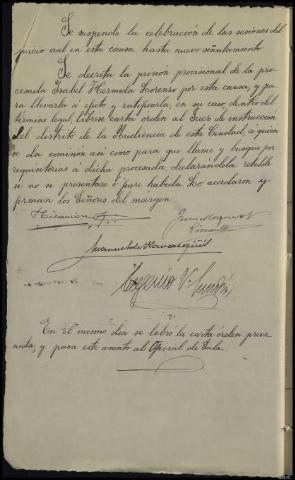 Se suspende la celebración de las sesiones del
juicio oral en esta causa hasta nuevo señalamiento.
Se decreta la prisión provisional de la pro-
cesada Isabel Hermida Lorenzo por esta causa, y pa-
ra llevarla á efecto y ratificarla, en su caso, dentro del
término legal, líbrese carta orden al Juez de instrucción
del distrito de la Audiencia de esta Ciudad, á quien
se da comisión así como para que llame y busque por
requisitorias á dicha procesada, declarándola rebelde
si no se presentase ó fuere habida. Lo acordaron y
firman los Señores del margen.
Manuel de
Eugenio
En el mismo día se libró la carta orden preve-
nida, y pasa este asunto al Oficial de Sala.